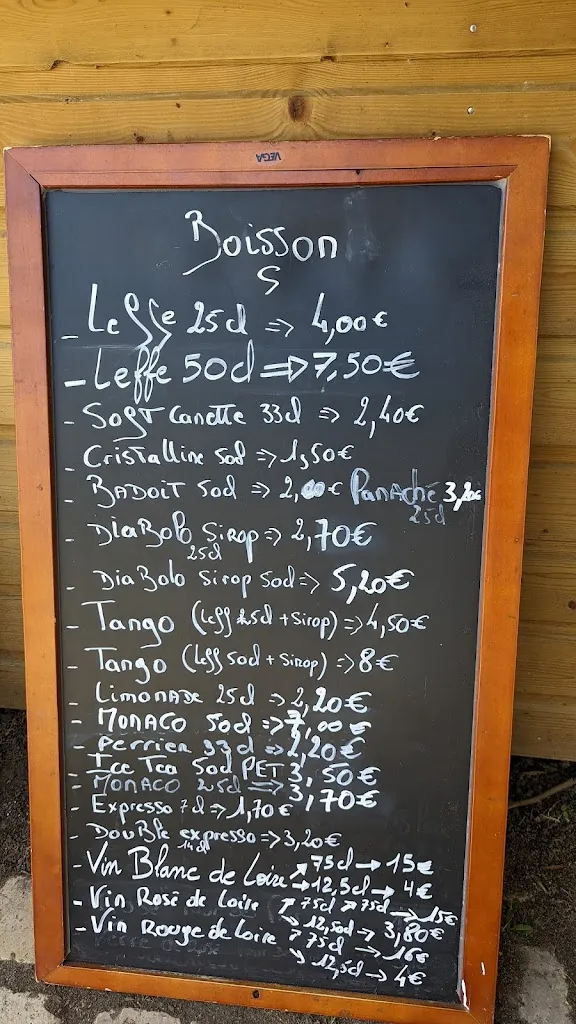 VEGA
Boisson
S
- Leffe 25cl => 4,00€
- Leffe 50cl => 7,50€
- Soft Canette 33cl => 2,40€
- Cristalline 50cl => 1,50€
- BADOiT 50cl => 2,00€ PANACHé 3,20€
25cl
- DiaBolo Sirop => 2,70€
25cl
- DiaBolo Sirop 50cl => 5,20€
- Tango (Leff 25cl + Sirop) => 4,50€
- Tango (Leff 50cl + Sirop) => 8€
- LimonADE 25cl => 2,20€
- MONACO 50cl => 7,00€
- Perrier 33cl => 2,20€
- Ice Tea 50cl PET 3,50€
- MONACO 25cl => 3,70€
- Expresso 7cl => 1,70€
- DouBle expresso => 3,20€
14cl
- Vin Blanc de Loire ↗ 75cl → 15€
→ 12,5cl → 4€
- Vin Rosé de Loire ↗ 75cl → 75cl → 15€
↘ 12,5cl → 3,80€
- Vin Rouge de Loire ↗ 75cl → 16€
↘ 12,5cl → 4€